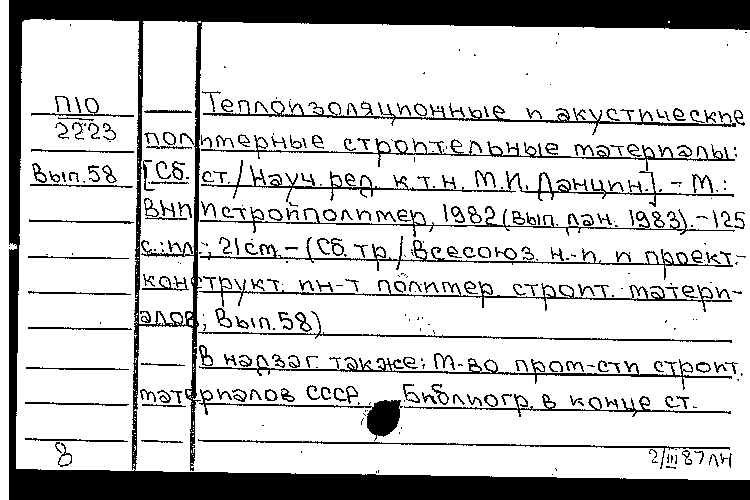 П10
2223
Вып.58
Теплоизоляционные и акустические
полимерные строительные материалы:
[Сб. ст./Науч. ред. к.т.н. М.И. Данцин.]. – М.:
ВНИИстройполимер, 1982 (вып. дан. 1983). – 125
с.: ил.; 21 см. – (Сб. тр./Всесоюз. н.-и. и проект.-
конструкт. ин-т полимер. строит. матери-
алов; Вып. 58)
В надзаг. также: М-во пром-сти строит.
материалов СССР. Библиогр. в конце ст.
8
2/III 87 ЛН